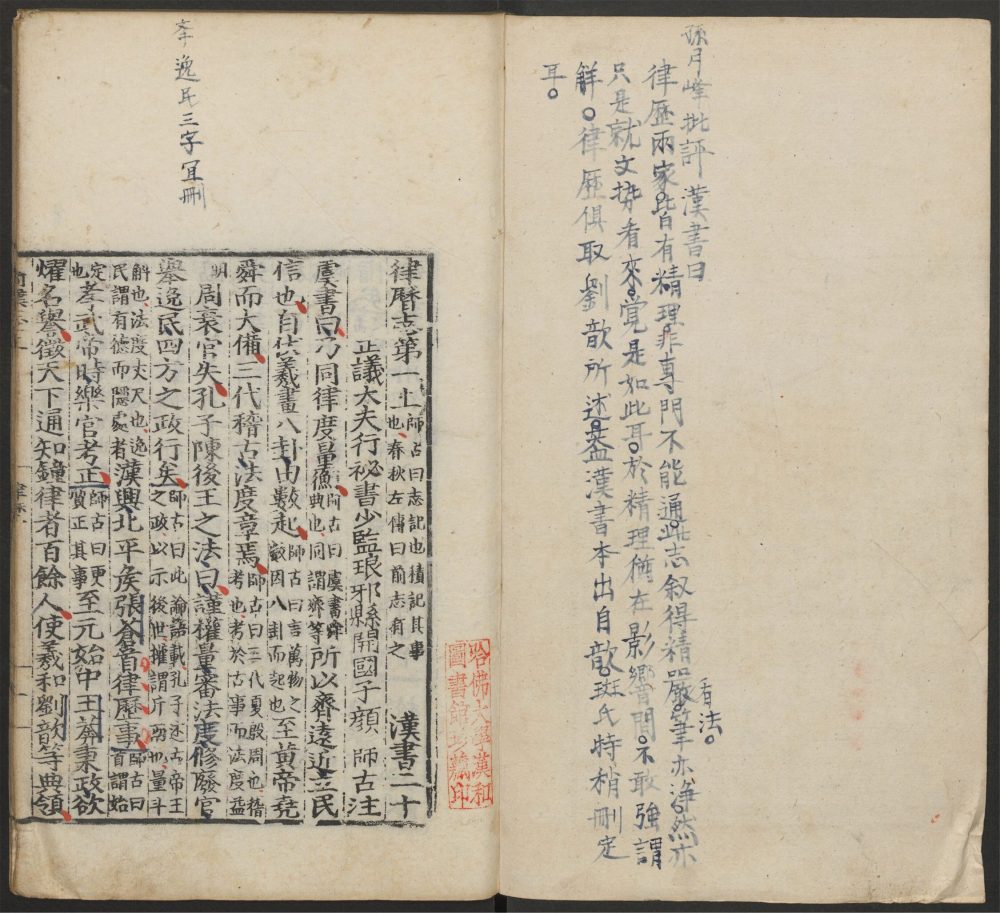 孫月峰批評漢書曰
律歷兩家皆有精理非專門不能通此志叙得精嚴筆亦淨然亦
看法
只是就文勢看來覺是如此耳於精理猶在影響間不敢強謂
解律歷俱取劉歆所述葢漢書本出自歆班氏特稍刪定
耳
哈佛大學漢和
圖書館珍藏印
李逸民三字宜刪
律曆志第一上 師古曰志記也積記其事也春秋左傳曰前志有之 漢書二十
正議大夫行祕書少監琅邪縣開國子顏 師古注
虞書曰乃同律度量衡 師古曰虞書舜典也同謂齊等 所以齊遠近立民
信也自伏羲畫八卦由數起 師古曰言萬物之數因八卦而起也 至黃帝堯
舜而大備三代稽古法度章焉 師古曰三代夏殷周也稽考也考於古事而法度益明
周衰官失孔子陳後王之法曰謹權量審法度修廢官
舉逸民四方之政行矣 師古曰此論語載孔子述古帝王之政以示後世權謂斤兩也量斗
斛也法度丈尺也逸民謂有德而隱處者 漢興北平矦張蒼首律歷事 師古曰首謂始
定也 孝武帝時樂官考正 師古曰更質正其事 至元始中王莽秉政欲
燿名譽徵天下通知鐘律者百餘人使羲和劉歆等典領